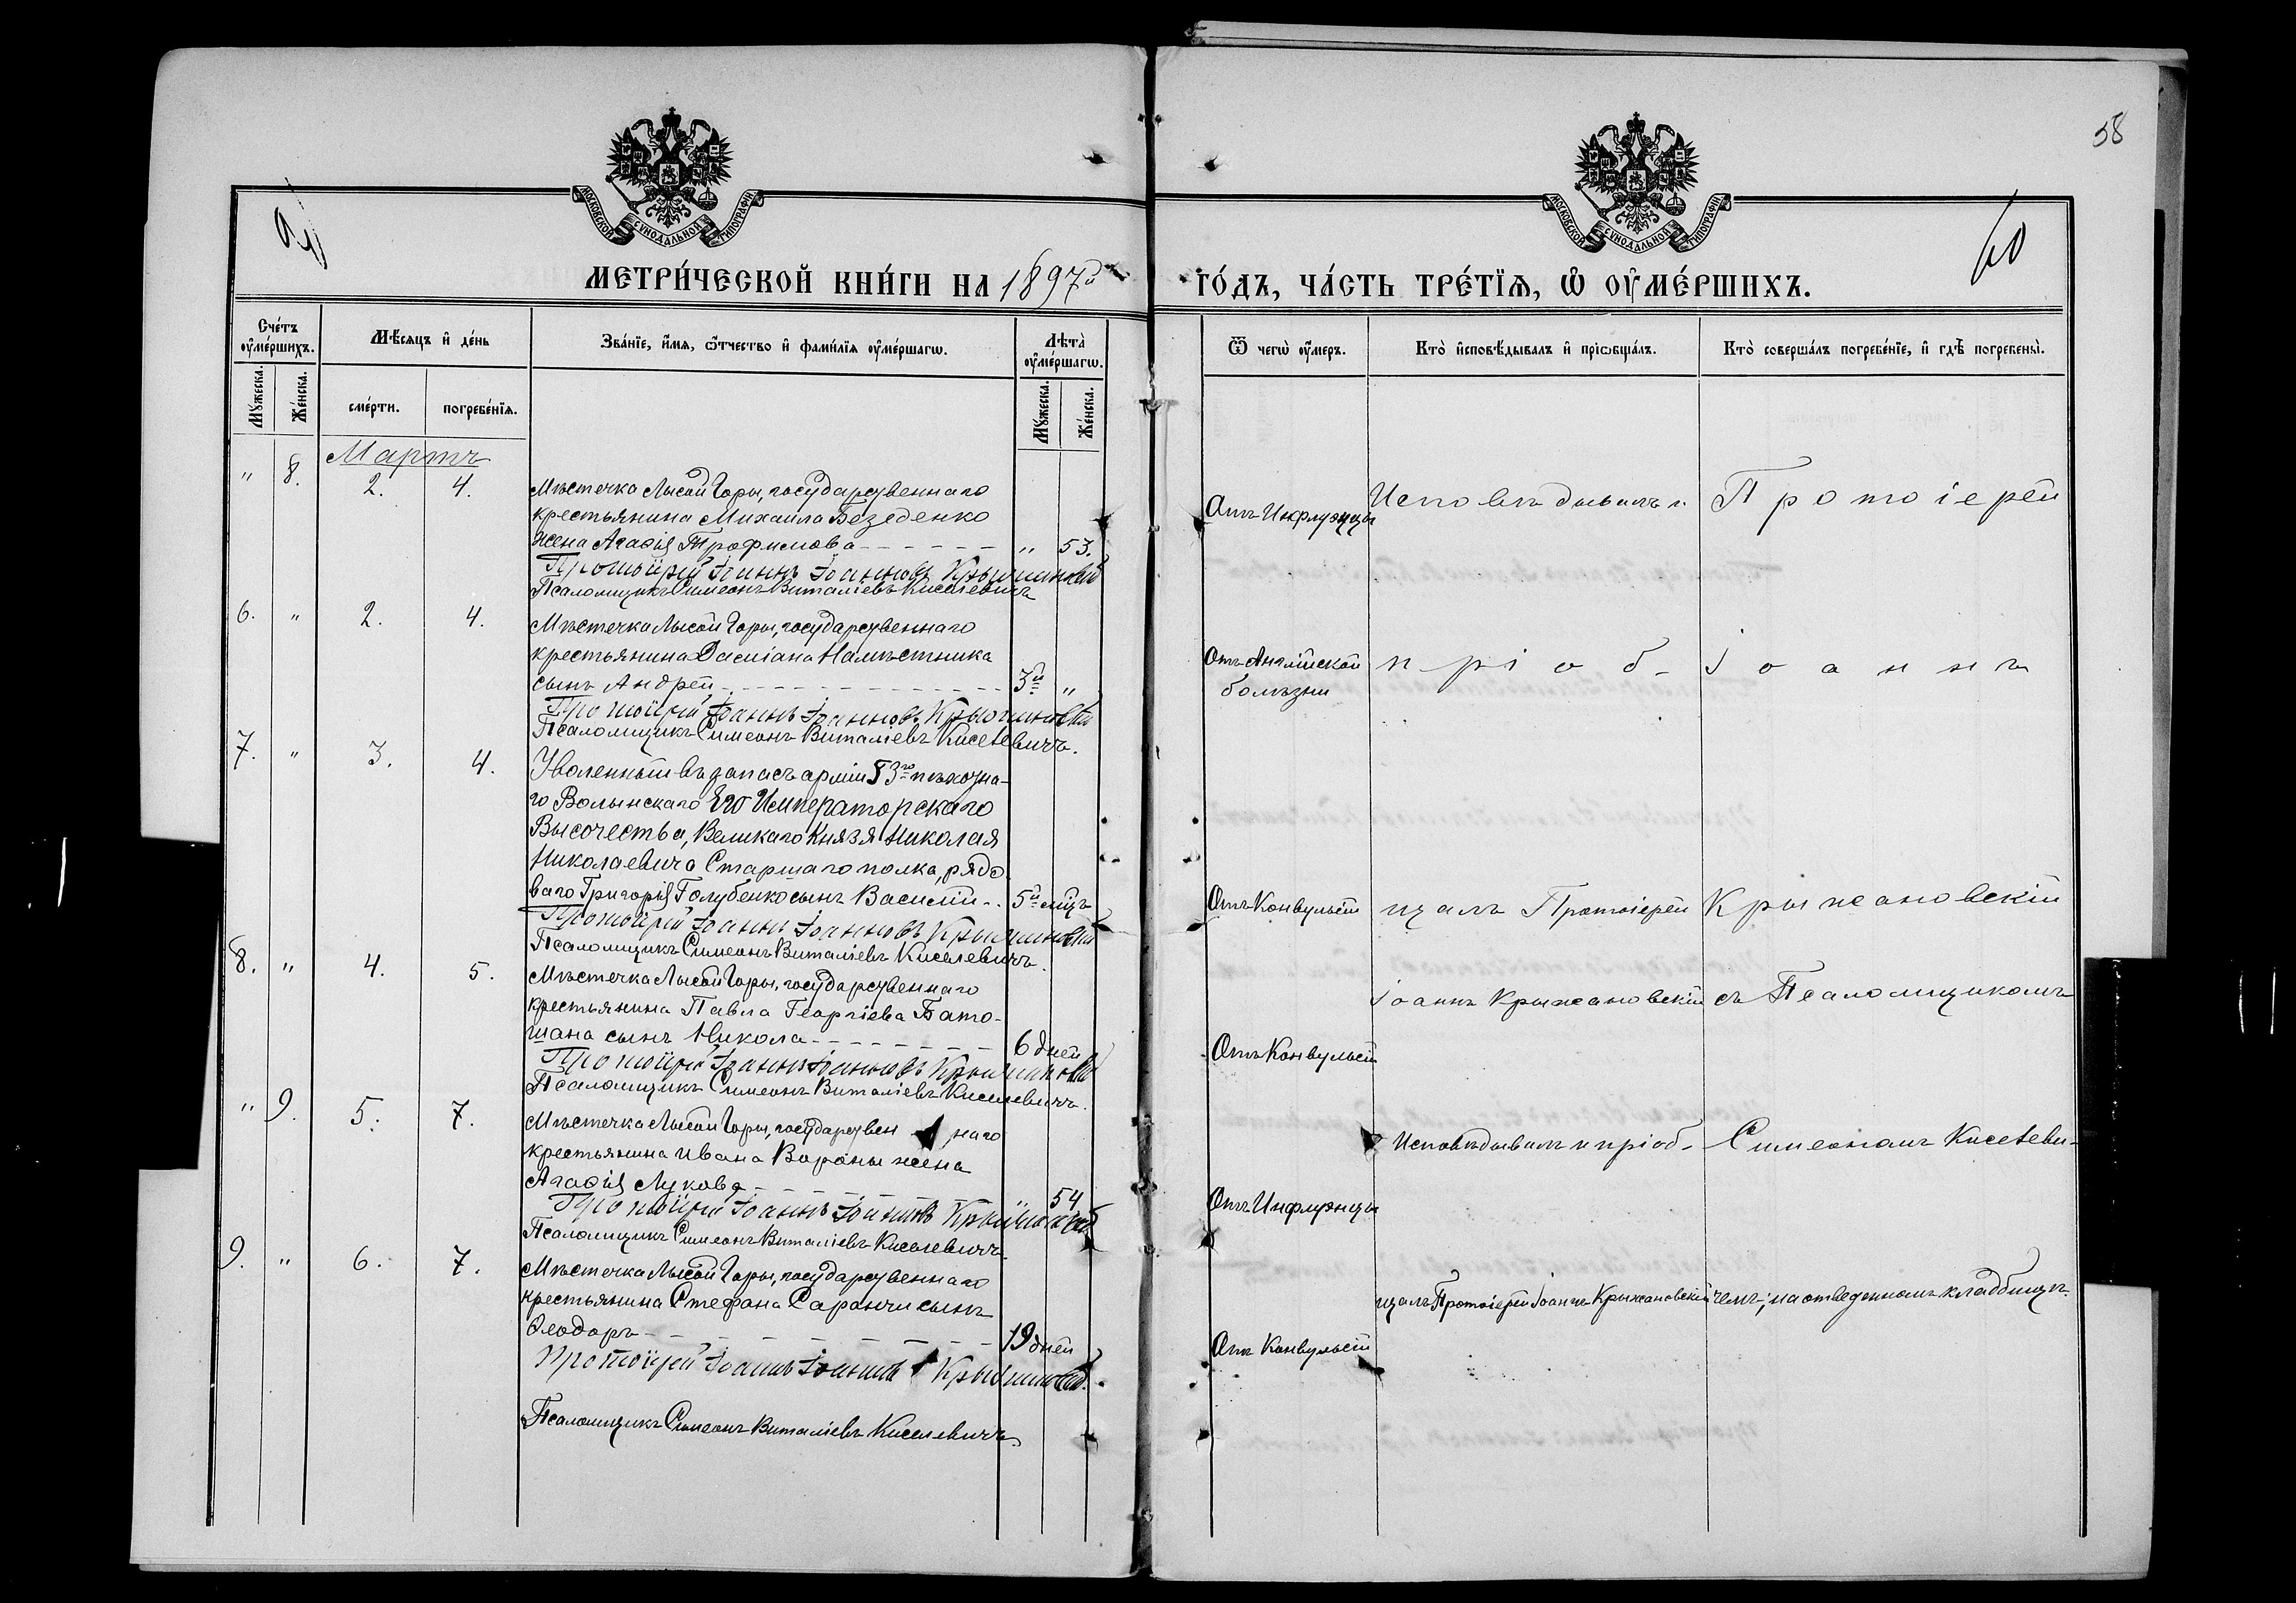 58
60
МОСКОВСКОЙ СѴНОДАЛЬНОЙ ТИПОГРАФІИ
МОСКОВСКОЙ СѴНОДАЛЬНОЙ ТИПОГРАФІИ
МЕТРИ́ЧЕСКОЙ КНИ́ГИ НА 1897й
ГО́ДЪ, ЧА́СТЬ ТРЕ́ТЇѦ, Ѡ҆ ОУ҆МЕ́РШИХЪ.
Сче́тъ оу҆ме́ршихъ.
Мꙋ́жеска.
Же́нска.
Мѣ́сяцъ и҆ де́нь
сме́рти.
погребе́нїѧ.
Зва́нїе, и҆́мѧ, ѻ҆́тчество и҆ фами́лїѧ оу҆ме́ршагѡ.
Лѣ́та оу҆ме́ршагѡ.
Мꙋ́жеска.
Же́нска.
Ѿ чегѡ̀ оу҆́меръ.
Кто̀ и҆сповѣ́дывалъ и҆ прїѡбща́лъ.
Кто̀ соверша́лъ погребе́нїе, и҆ гдѣ̀ погребены̀.
Мартъ
" 8. 2. 4. Мѣстечка Лысой Горы, государственнаго
крестьянина Михаила Безеденко
жена Агафія Трофимова " 53.
Протоіерей Іоаннъ Іоанновъ Крыжановскій
Псаломщикъ Симеонъ Виталіевъ Киселевичъ
Отъ Инфлуэнцы
Исповѣдывалъ и
Протоіерей
6. " 2. 4. Мѣстечка Лысой Горы, государственнаго
крестьянина Даміана Намѣстника
сынъ Андрей 3й "
Протоіерей Іоаннъ Іоанновъ Крыжановскій
Псаломщикъ Симеонъ Виталіевъ Киселевичъ.
Отъ Англійской
болѣзни
пріоб-
Іоаннъ
7. " 3. 4. Уволенный въ запасъ арміи 53го пѣхотна-
го Волынскаго Его Императорскаго
Высочества, Великаго Князя Николая
Николаевича Старшаго полка, рядо-
ваго Григорія Голубенко сынъ Василій 5й мцъ
Протоіерей Іоаннъ Іоанновъ Крыжановскій
Псаломщикъ Симеонъ Виталіевъ Киселевичъ.
Отъ Конвульсій
щалъ Протоіерей
Крыжановскій
8. " 4. 5. Мѣстечка Лысой Горы, государственнаго
крестьянина Павла Георгіева Бато-
шана сынъ Никола 6 дней
Протоіерей Іоаннъ Іоанновъ Крыжановскій
Псаломщикъ Симеонъ Виталіевъ Киселевичъ.
Отъ Конвульсій
Іоаннъ Крыжановскій
съ Псаломщикомъ
" 9. 5. 7. Мѣстечка Лысой Горы, государственнаго
крестьянина Ивана Вороны жена
Агафія Лукова " 54
Протоіерей Іоаннъ Іоанновъ Крыжановскій
Псаломщикъ Симеонъ Виталіевъ Киселевичъ
Отъ Инфлуэнцы
Исповѣдывалъ и пріоб-
Симеономъ Киселеви-
9. " 6. 7. Мѣстечка Лысой Горы, государственнаго
крестьянина Стефана Саранчи сынъ
Ѳеодоръ 19 дней
Протоіерей Іоаннъ Іоанновъ Крыжановскій.
Псаломщикъ Симеонъ Виталіевъ Киселевичъ
Отъ Конвульсій
щалъ Протоіерей Іоаннъ Крыжановскій
чемъ; на отведенномъ кладбищѣ.